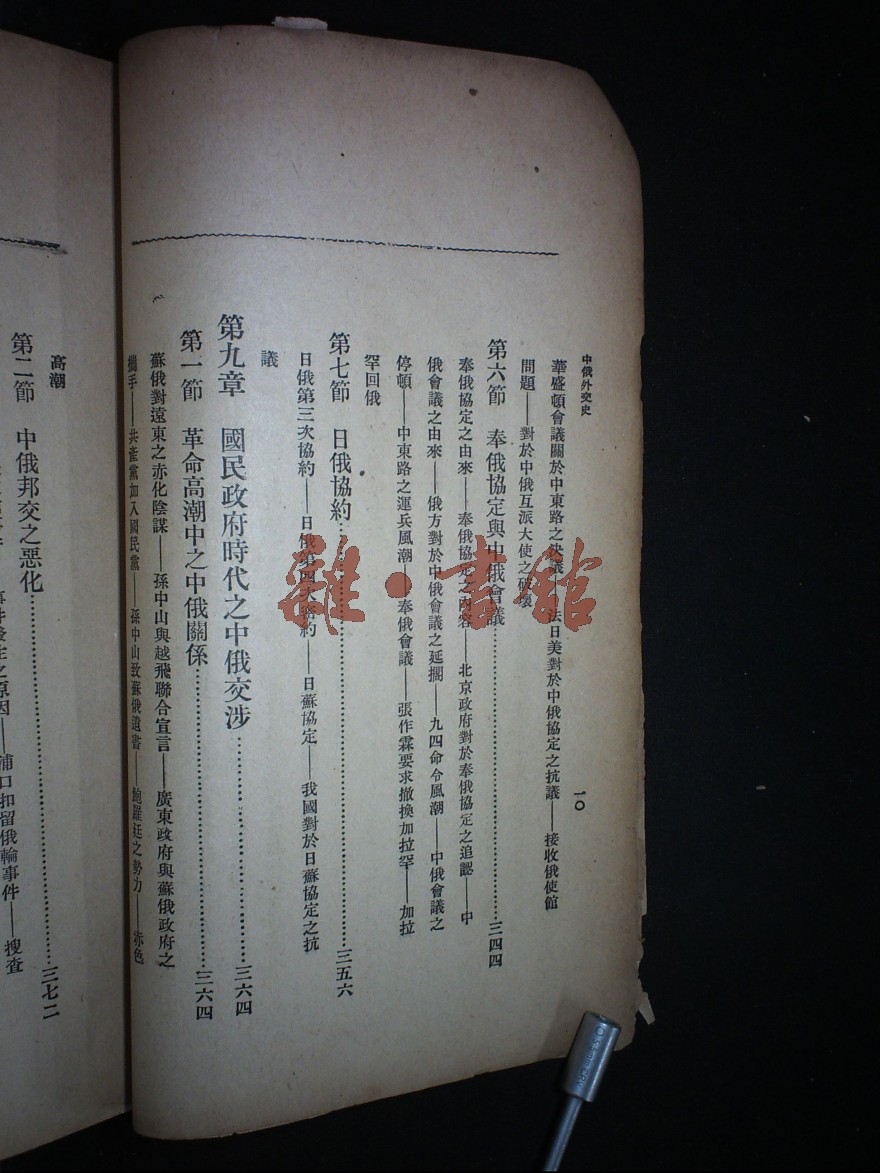 中俄外交史
一〇
華盛頓會議關於中東路之決議——法日美對於中俄協定之抗議——接收俄使館
問題——對於中俄互派大使之破壞
第六節 奉俄協定與中俄會議……三四四
奉俄協定之由來——奉俄協定之內容——北京政府對於奉俄協定之追認——中
俄會議之由來——俄方對於中俄會議之延擱——九四命令風潮——中俄會議之
停頓——中東路之運兵風潮——奉俄會議——張作霖要求撤換加拉罕——加拉
罕回俄
第七節 日俄協約……三五六
日俄第三次協約——日俄第四次密約——日蘇協定——我國對於日蘇協定之抗
議
第九章 國民政府時代之中俄交涉……三六四
第一節 革命高潮中之中俄關係……三六四
蘇俄對遠東之赤化陰謀——孫中山與越飛聯合宣言——廣東政府與蘇俄政府之
攜手——共產黨加入國民黨——孫中山致蘇俄遺書——鮑羅廷之勢力——赤色
高潮
第二節 中俄邦交之惡化……三七二
事件發生之原因——浦口扣留俄輪事件——搜查
雜·書館